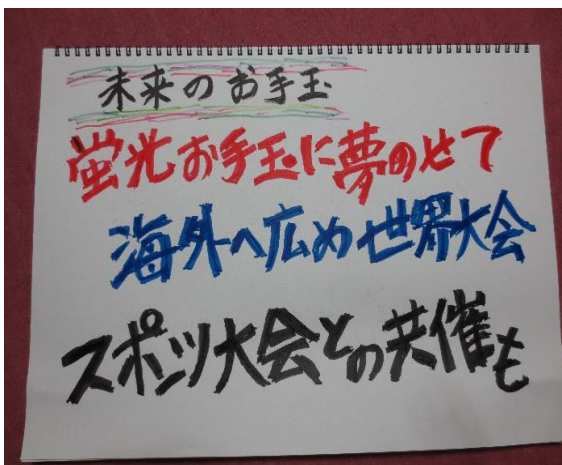 未来のお手玉
蛍光お手玉に夢のせて
海外へ広め世界大会
スポーツ大会との共催も